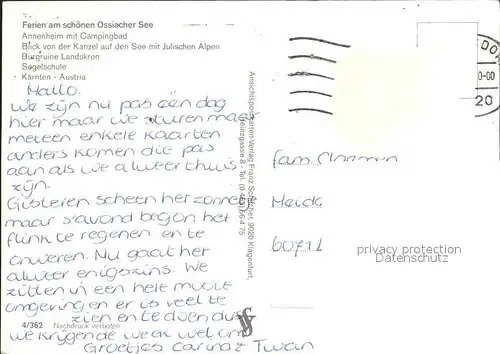 Ferien am schönen Ossiacher See
Annenheim mit Campingbad
Blick von der Kanzel auf den See mit Julischen Alpen
Burgruine Landskron
Segelschule
Kärnten - Austria
Hallo.
We zijn nu pas één dag
hier maar we sturen maar
meteen enkele kaarten
anders komen die pas
aan als we alweer thuis
zijn.
Gisteren scheen het zonnetje
maar s'avond begon het
flink te regenen en te
onweren. Nu gaat het
alweer enigszins. We
zitten in een hele mooie
omgeving en er is veel te
zien en te doen dus
we krijgen de week wel om
Groetjes Carina & Twan
4/362 Nachdruck verboten
Ansichtspostkarten-Verlag Franz 9020 Klagenfurt,
8 - Tel.
fam
6071
privacy protection
Datenschutz
20